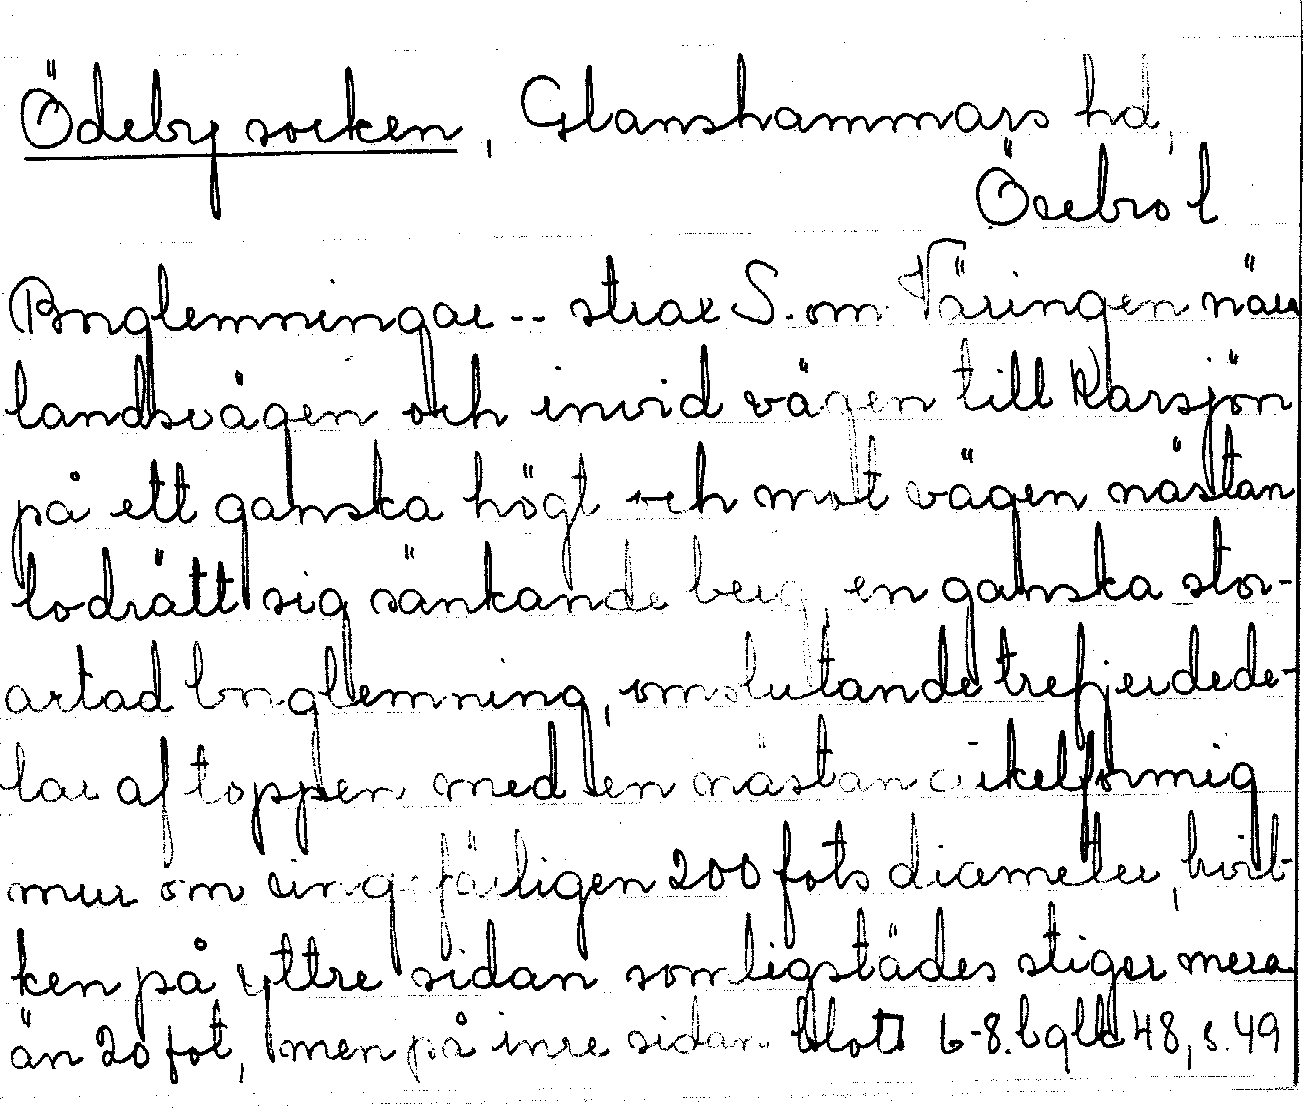 Ödeby socken, Glanshammars hd,
Örebro l
Bnglemningar -- strax S. om Väringen när
landsvägen och invid vägen till Karsjön
på ett ganska högt och mot vägen nästan
lodrätt sig sänkande berg, en ganska stor-
artad bnglemning, omslutande trefjerdede-
lar af toppen med en nästan cirkelformig
mur om ungefärligen 200 fots diameter, hvil-
ken på yttre sidan somligstädes stiger mera
än 20 fot, men på inre sidan blott 6-8. 48, s. 49